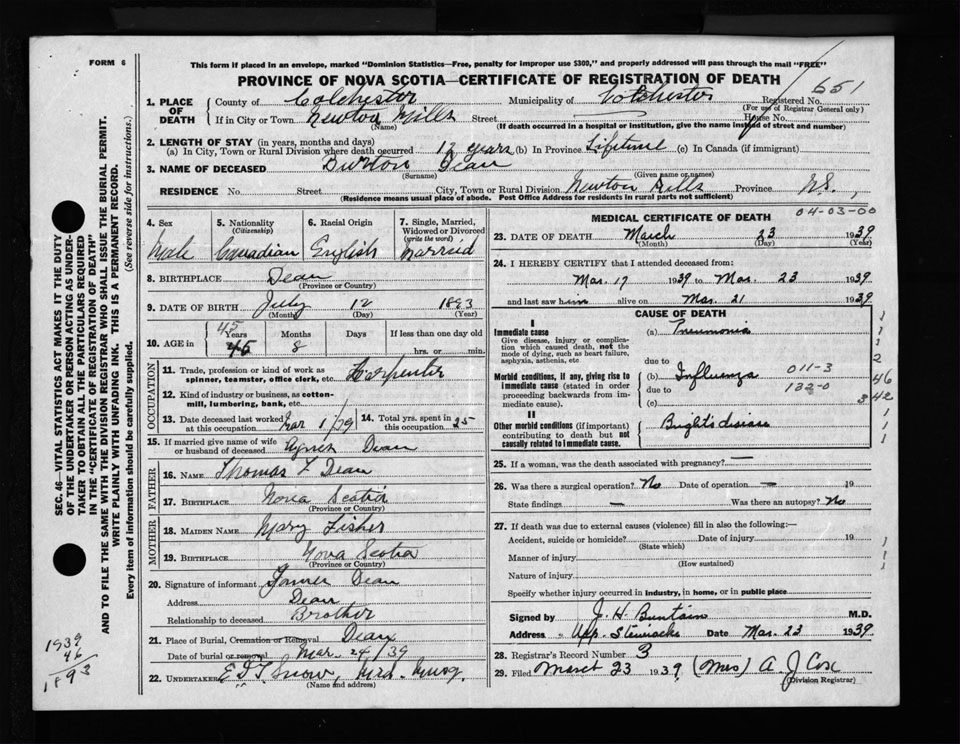 FORM 6
This form if placed in an envelope, marked "Dominion Statistics—Free, penalty for improper use $300," and properly addressed will pass through the mail "FREE"
PROVINCE OF NOVA SCOTIA—CERTIFICATE OF REGISTRATION OF DEATH
1. PLACE OF DEATH County of Colchester Municipality of Colchester Registered No. 551
(For use of Registrar General only)
If in City or Town Newton Mills Street House No.
(Name) (If death occurred in a hospital or institution, give the name instead of street and number)
2. LENGTH OF STAY (in years, months and days)
(a) In City, Town or Rural Division where death occurred 12 years (b) In Province Lifetime (c) In Canada (if immigrant)
3. NAME OF DECEASED Burton Dean
(Surname) (Given name or names)
RESIDENCE No. Street City, Town or Rural Division Newton Mills Province N.S.
(Residence means usual place of abode. Post Office Address for residents in rural parts not sufficient)
4. Sex Male
5. Nationality (Citizenship) Canadian
6. Racial Origin English
7. Single, Married, Widowed or Divorced (write the word) Married
8. BIRTHPLACE Dean
(Province or Country)
9. DATE OF BIRTH July 12 1893
(Month) (Day) (Year)
10. AGE in Years 45 45 Months 8 Days If less than one day old hrs. or min.
OCCUPATION
11. Trade, profession or kind of work as spinner, teamster, office clerk, etc. Carpenter
12. Kind of industry or business, as cotton-mill, lumbering, bank, etc.
13. Date deceased last worked at this occupation Mar 1/39
14. Total yrs. spent in this occupation 25
15. If married give name of wife or husband of deceased Agnes Dean
FATHER
16. NAME Thomas F Dean
17. BIRTHPLACE Nova Scotia
(Province or Country)
MOTHER
18. MAIDEN NAME Mary Fisher
19. BIRTHPLACE Nova Scotia
(Province or Country)
20. Signature of informant James Dean
Address Dean
Relationship to deceased Brother
21. Place of Burial, Cremation or Removal Dean
Date of burial or removal Mar. 24/39
22. UNDERTAKER Snow, Musq.
(Name and address)
MEDICAL CERTIFICATE OF DEATH
04-03-00
23. DATE OF DEATH March 23 1939
(Month) (Day) (Year)
24. I HEREBY CERTIFY that I attended deceased from:
Mar. 17 1939 to Mar. 23 1939
and last saw him alive on Mar. 21 1939
CAUSE OF DEATH
I
Immediate cause (a) Pneumonia
Give disease, injury or complication which caused death, not the mode of dying, such as heart failure, asphyxia, asthenia, etc
due to
Morbid conditions, if any, giving rise to immediate cause (stated in order proceeding backwards from immediate cause). (b) Influenza 011-3
due to 132-0
(c)
II
Other morbid conditions (if important) contributing to death but not causally related to immediate cause. Bright's disease
2
46
342
25. If a woman, was the death associated with pregnancy? —
26. Was there a surgical operation? No Date of operation — 19
State findings — Was there an autopsy? No
27. If death was due to external causes (violence) fill in also the following:—
Accident, suicide or homicide? Date of injury 19
(State which)
Manner of injury
(How sustained)
Nature of injury
Specify whether injury occurred in industry, in home, or in public place
Signed by J. H. Buntain M.D.
Address Upp. Stewiacke Date Mar. 23 1939
28. Registrar's Record Number 3
29. Filed March 23 1939 (Mrs) A. J Cox
(Division Registrar)
SEC. 46—VITAL STATISTICS ACT MAKES IT THE DUTY
OF THE UNDERTAKER OR PERSON ACTING AS UNDER-
TAKER TO OBTAIN ALL THE PARTICULARS REQUIRED
IN THE "CERTIFICATE OF REGISTRATION OF DEATH"
AND TO FILE THE SAME WITH THE DIVISION REGISTRAR WHO SHALL ISSUE THE BURIAL PERMIT.
WRITE PLAINLY WITH UNFADING INK. THIS IS A PERMANENT RECORD.
Every item of information should be carefully supplied. (See reverse side for instructions.)
1939
46
1893